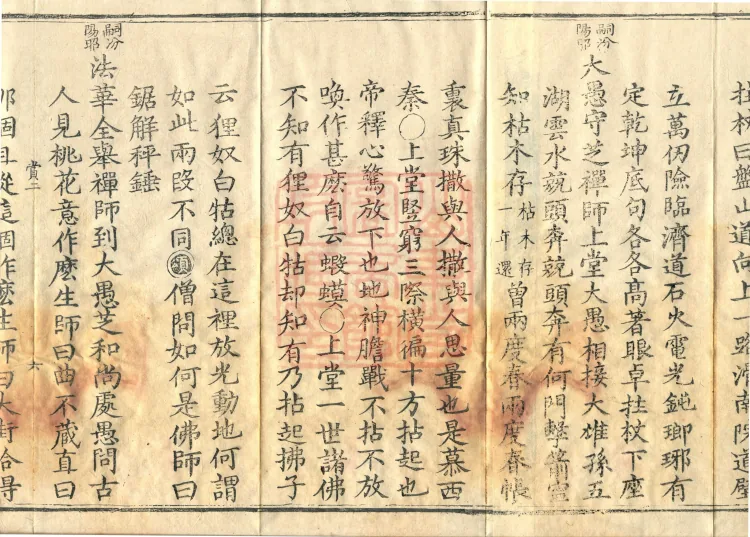 拄杖曰盤山道向上一路滑南院道壁
立萬仞險臨濟道石火電光鈍瑯琊有
定乾坤底句各各高著眼卓拄杖下座
嗣汾陽昭 大愚守芝禪師上堂大愚相接大雄孫五
湖雲水競頭奔競頭奔有何門擊箭寧
知枯木存枯木存一年還曾兩度春兩度春帳
裏真珠撒與人撒與人思量也是慕西
秦〇上堂竪窮三際橫徧十方拈起也
帝釋心驚放下也地神膽戰不拈不放
喚作甚麽自云蝦蟆〇上堂一世諸佛
不知有狸奴白牯却知有乃拈起拂子
云狸奴白牯總在這裡放光動地何謂
如此兩段不同僧問如何是佛師曰
鋸解秤錘
嗣汾陽昭 法華全舉禪師到大愚芝和尚處愚問古
人見桃花意作麽生師曰曲不藏直曰
賞二 六
那個且從這個作麽生師曰大街拾得